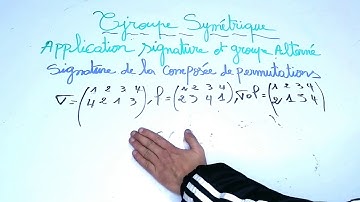 Groupe Symétrique
Application signature et groupe Alterné
Signature de la composée de permutations
σ = (1 2 3 4 / 4 2 1 3), ρ = (1 2 3 4 / 2 3 4 1), σoρ = (1 2 3 4 / 2 1 3 4)